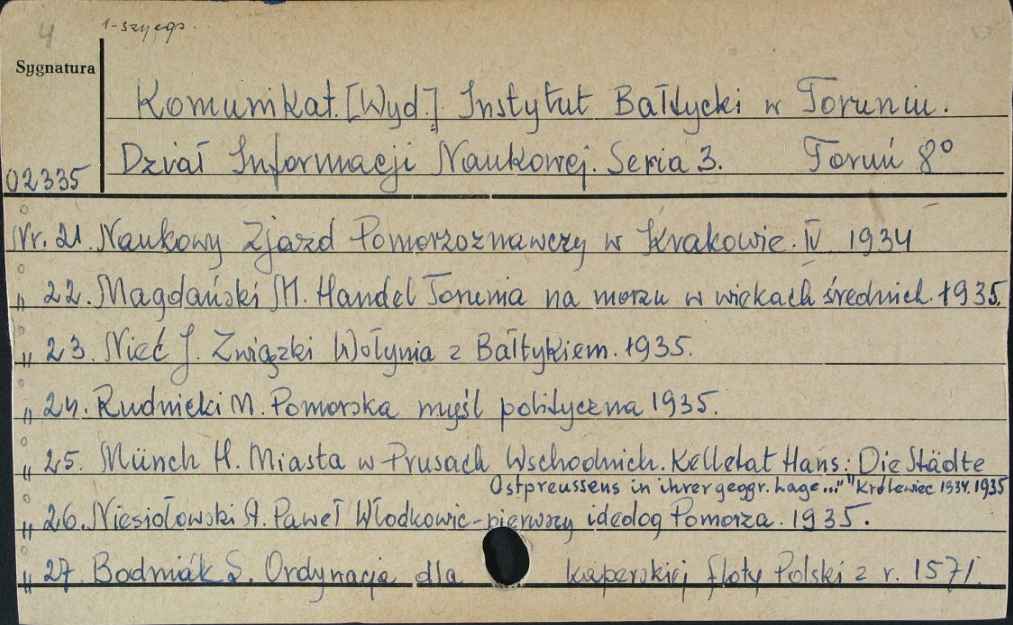 4 1-szy egz.
Sygnatura
Komunikat. [Wyd.]. Instytut Bałtycki w Toruniu.
Dział Informacji Naukowej. Seria 3. Toruń 8°
02335
Nr. 21. Naukowy Zjazd Pomorzoznawczy w Krakowie. IV 1934
" 22. Magdański M. Handel Torunia na morzu w wiekach średnich. 1935.
" 23. Nieć J. Związki Wołynia z Bałtykiem. 1935.
" 24. Rudnicki M. Pomorska myśl polityczna 1935.
" 25. Münch H. Miasta w Prusach Wschodnich. Kelletat Hans: Die Städte
Ostpreussens in ihrer geogr. Lage..." Królewiec 1934. 1935
" 26. Niesiołowski A. Paweł Włodkowic - pierwszy ideolog Pomorza. 1935.
" 27. Bodniak S. Ordynacja dla kaperskiej floty Polski z r. 1571.